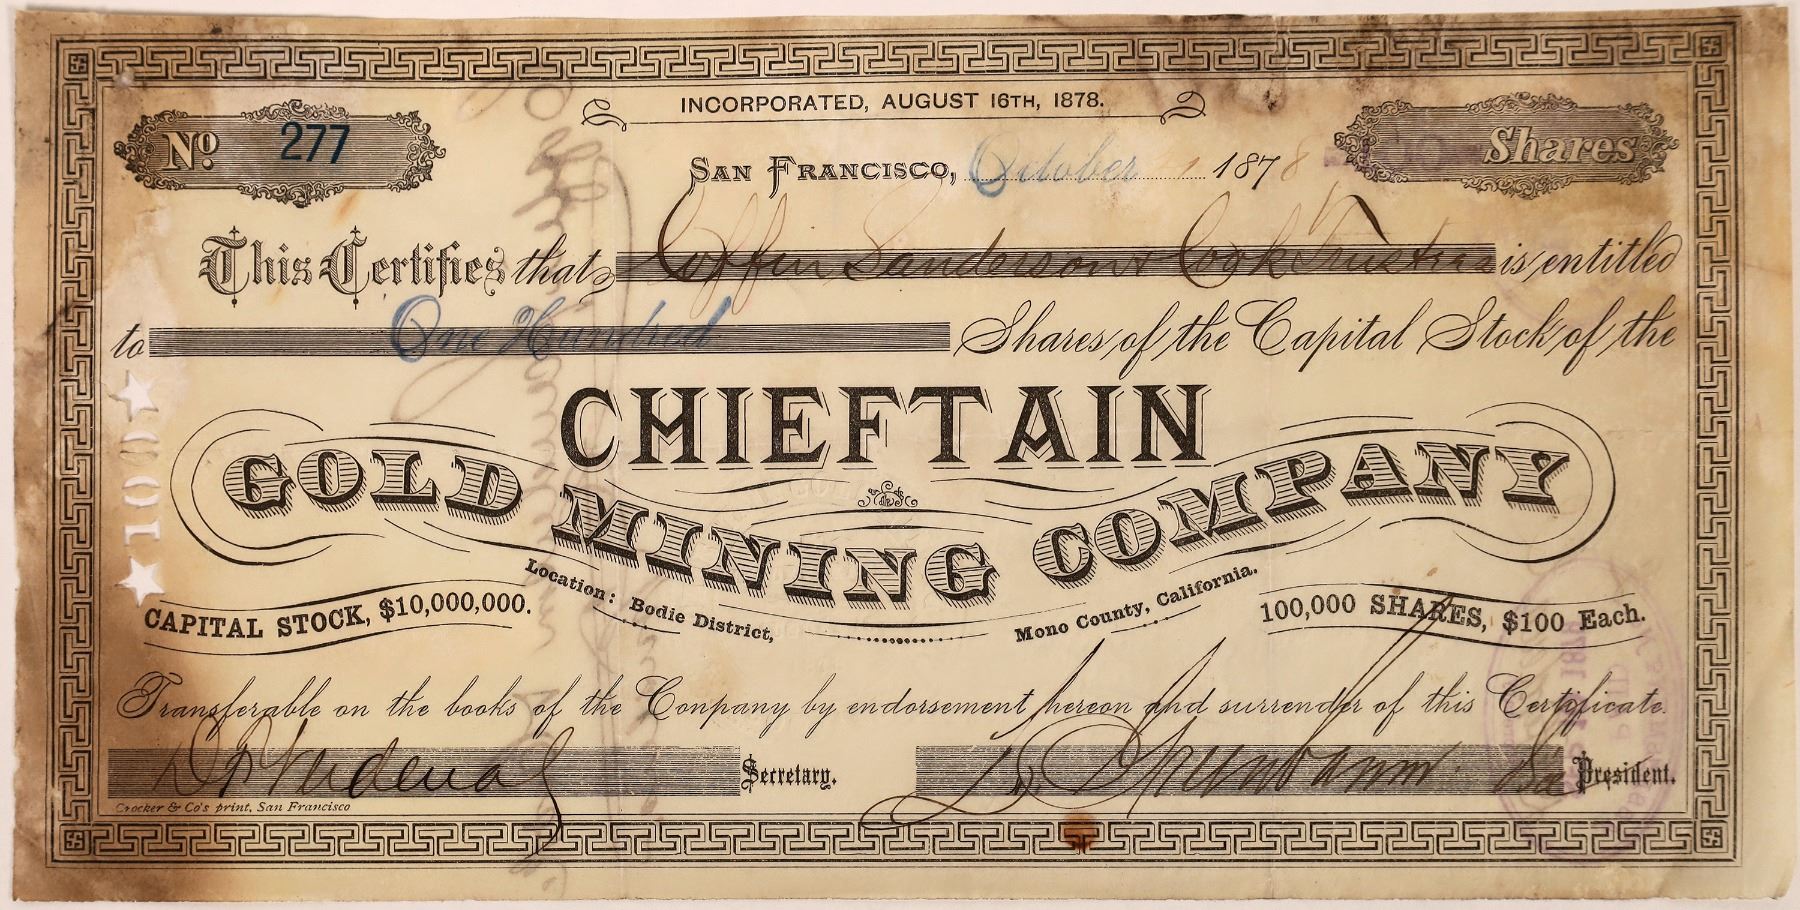 INCORPORATED, AUGUST 16TH, 1878.
No. 277
Shares
SAN FRANCISCO, October 1878
This Certifies that Coffin Sanderson & Cook Trustees is entitled
to One Hundred Shares of the Capital Stock of the
CHIEFTAIN
GOLD MINING COMPANY
100
Location: Bodie District, Mono County, California.
CAPITAL STOCK, $10,000,000.
100,000 SHARES, $100 Each.
Transferable on the books of the Conpany by endorsement hereon and surrender of this Certificate.
Secretary.
President.
Crocker & Co's print, San Francisco